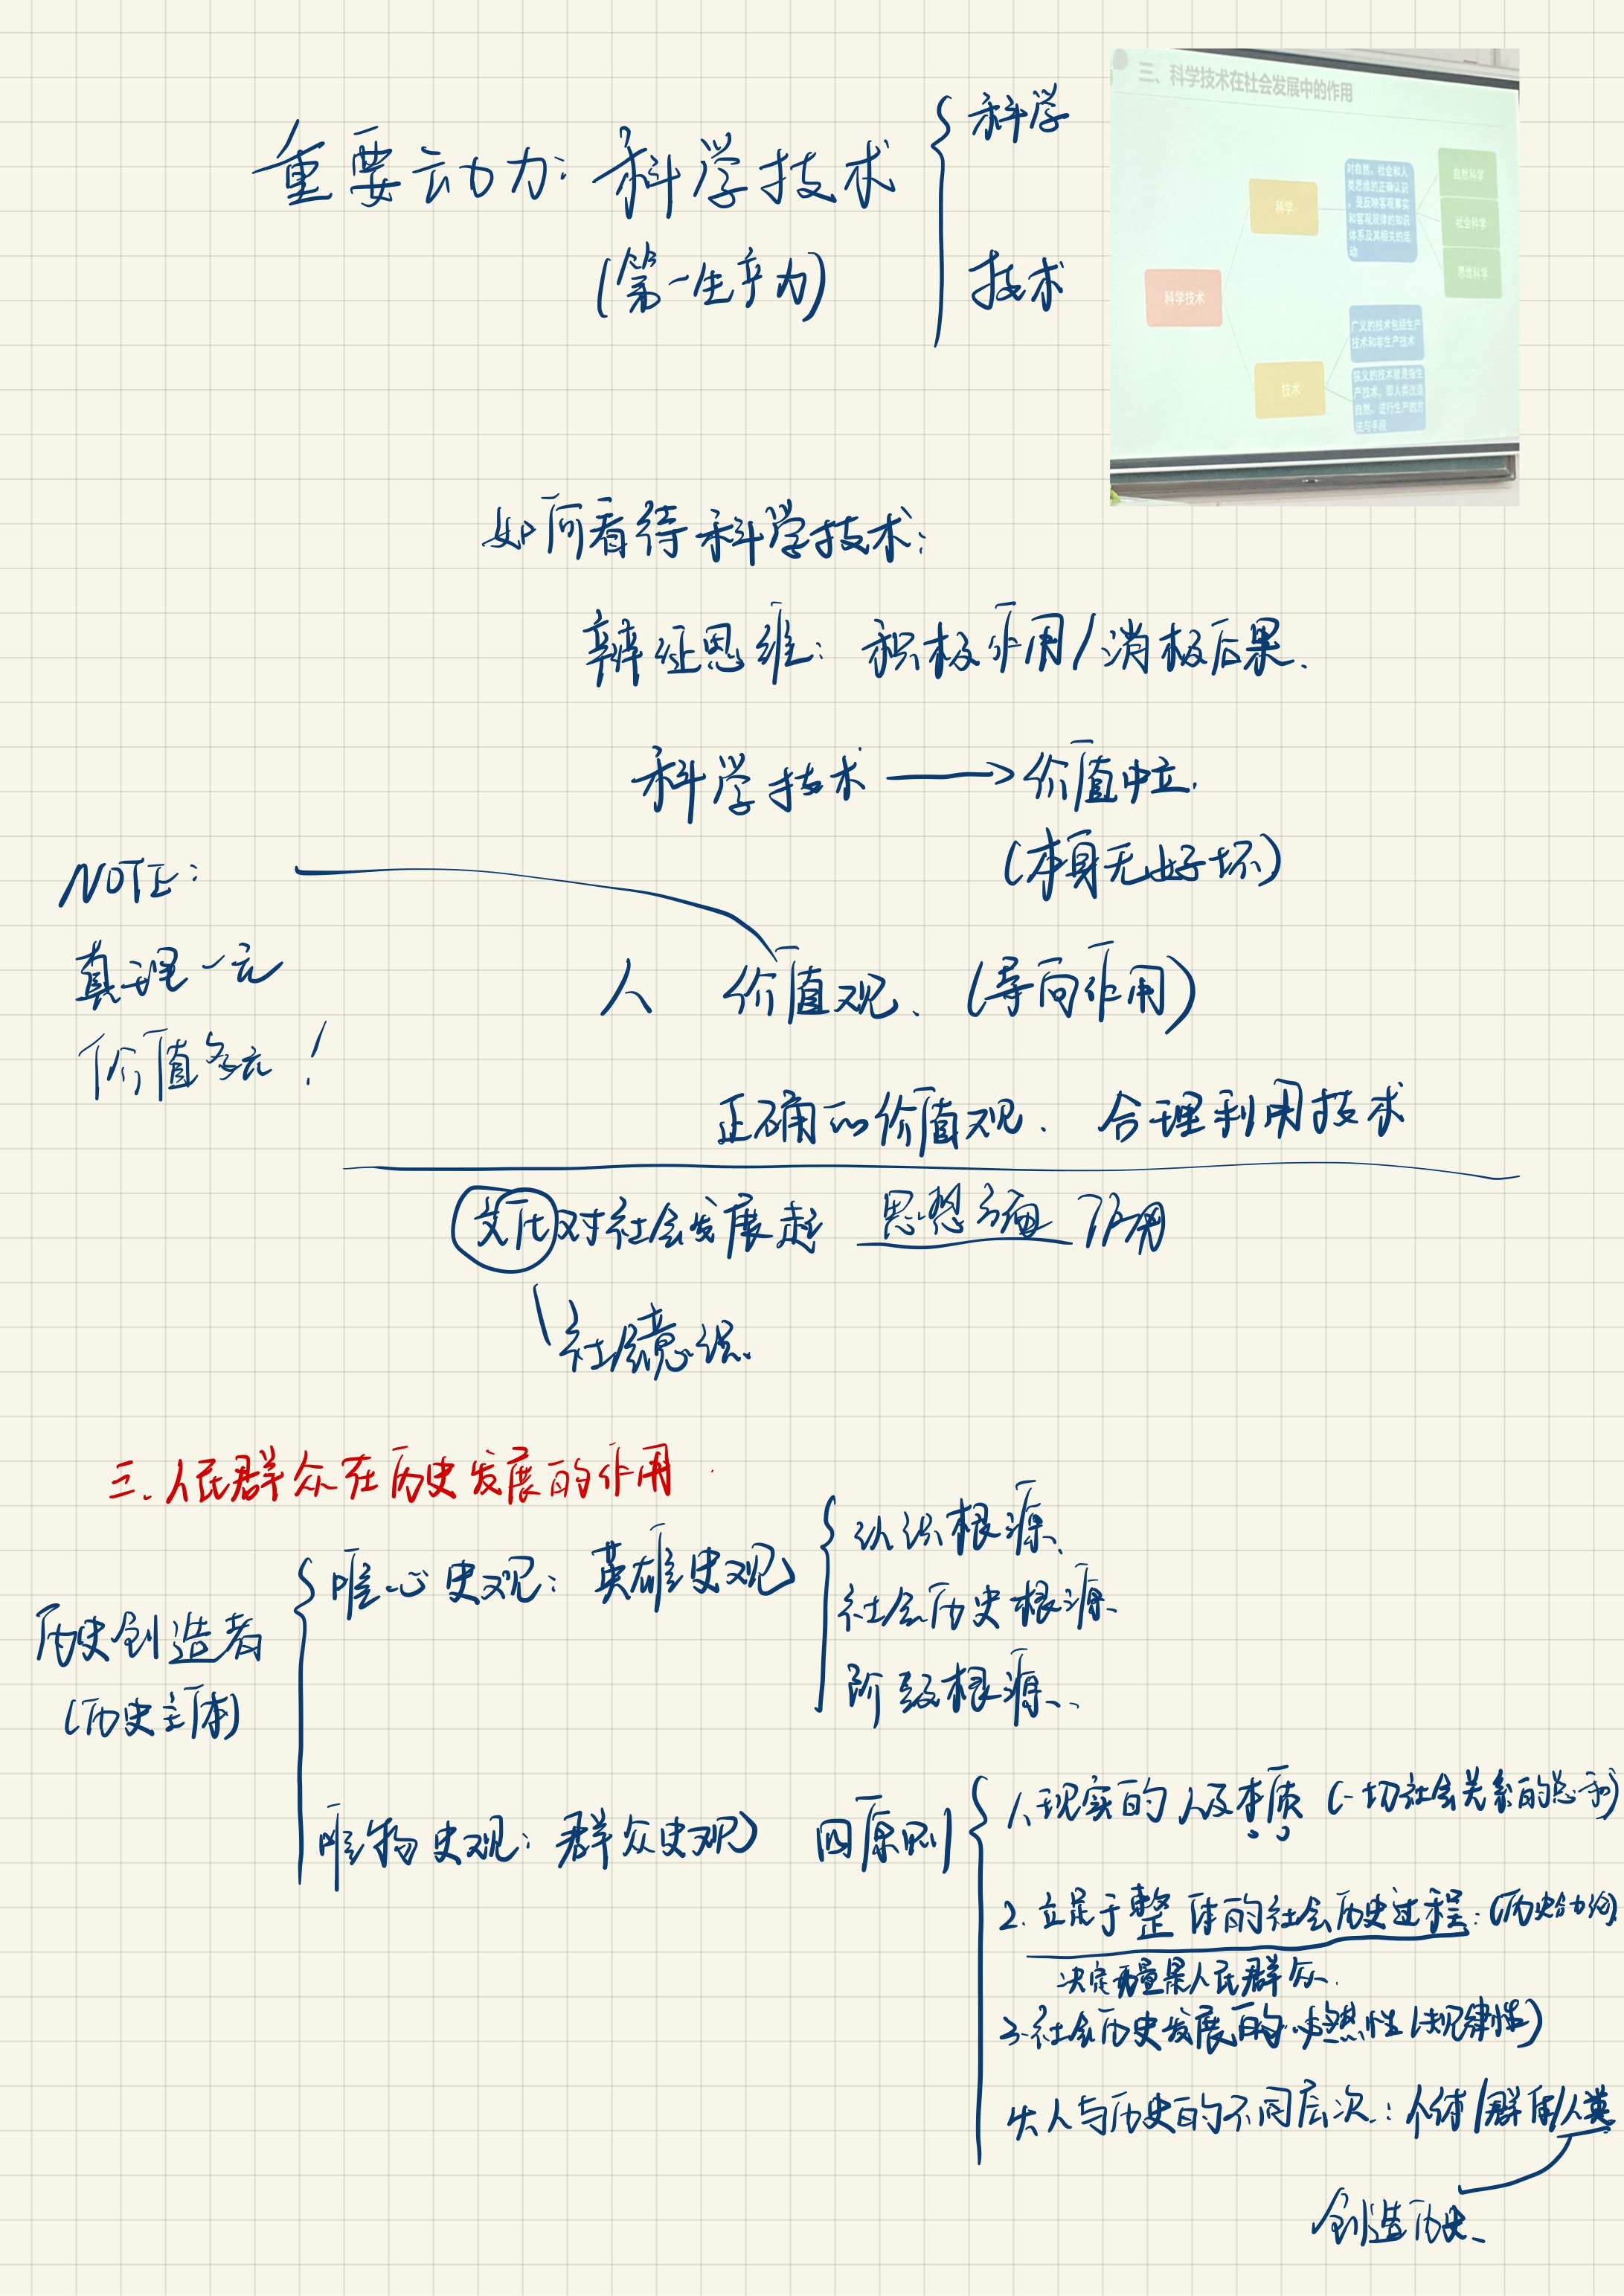 三、科学技术在社会发展中的作用
重要动力：科学技术
(第一生产力)
科学
技术
科学技术
科学
对自然、社会和人
类思维的正确认识
，是反映客观事实
和客观规律的知识
体系及其相关的活
动
自然科学
社会科学
思维科学
技术
广义的技术包括生产
技术和非生产技术
狭义的技术就是指生
产技术，即人类改造
自然、进行生产的方
法与手段
如何看待科学技术：
辩证思维：积极作用/消极后果、
科学技术 → 价值中立.
(本身无好坏)
NOTE:
真理一元
价值多元！
人 价值观、(导向作用)
正确的价值观、合理利用技术
文化对社会发展起 思想方面 作用
社会意识、
三、人民群众在历史发展的作用
历史创造者
(历史主体)
唯心史观：英雄史观
认识根源、
社会历史根源、
阶级根源、
唯物史观：群众史观 四原则
1、现实的人及本质 (一切社会关系的总和)
2. 立足于整体的社会历史过程：(历史合力论)
决定力量是人民群众.
3. 社会历史发展的必然性 (规律性)
人与历史的不同层次：个体/群体/人类
创造历史、